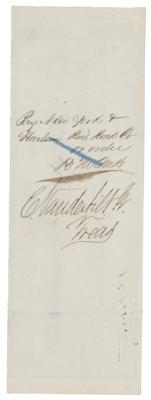 Pay New York &
Harlem Rail Road Co
or order
C. Vanderbilt Jr.
Treas